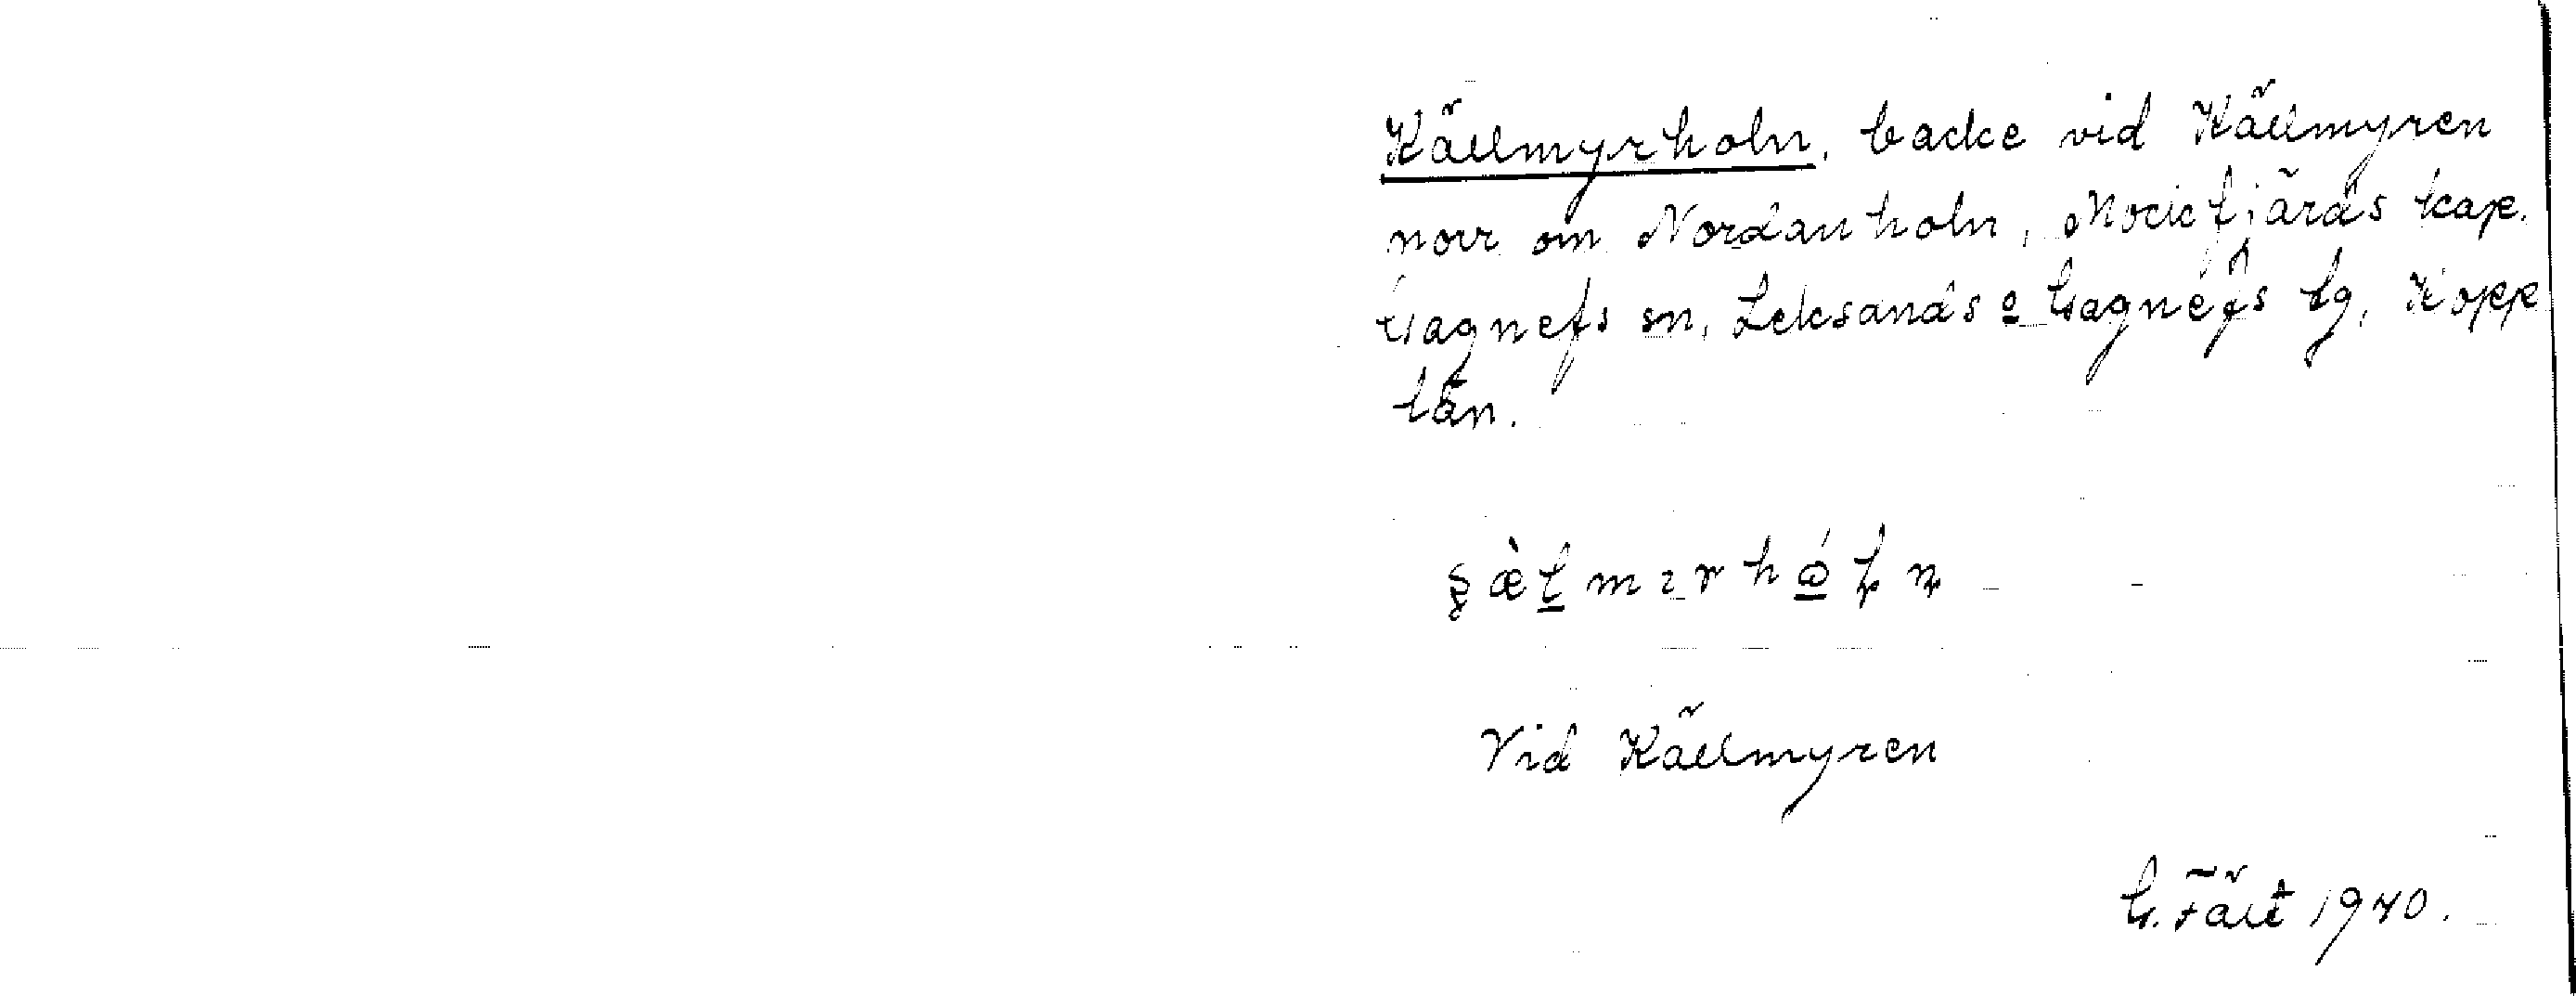 Källmyrholn, backe vid Källmyren
norr om Nordanholn, Mockfjärds kap.
Gagnefs sn, Leksands o Gagnefs tg, Kopp
län.
Vid Källmyren
G. Fält 1940.